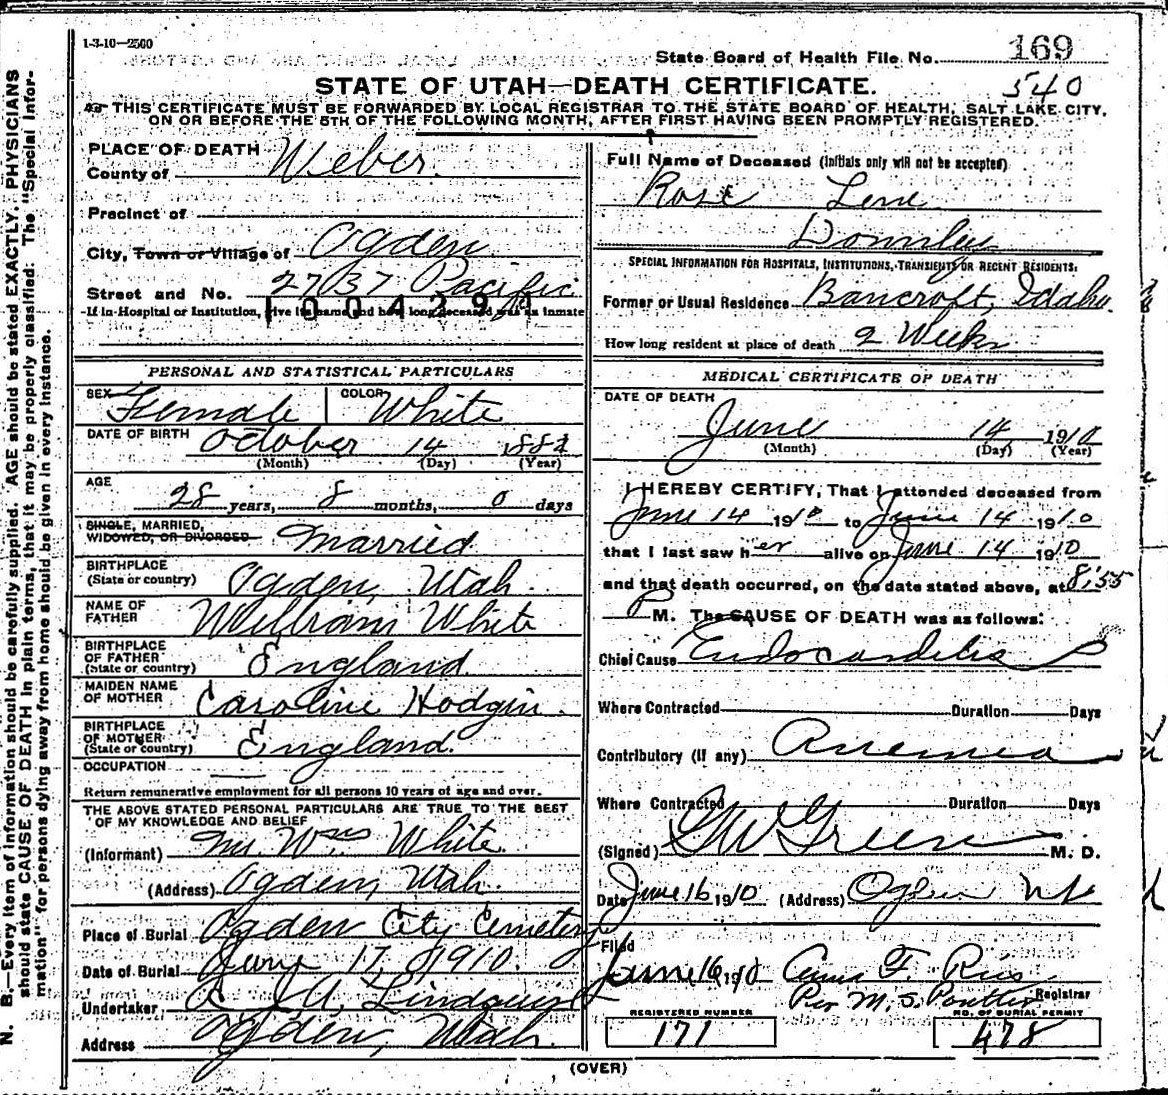 1-3-10—2500
State Board of Health File No. 169
540
STATE OF UTAH—DEATH CERTIFICATE.
THIS CERTIFICATE MUST BE FORWARDED BY LOCAL REGISTRAR TO THE STATE BOARD OF HEALTH, SALT LAKE CITY,
ON OR BEFORE THE 5TH OF THE FOLLOWING MONTH, AFTER FIRST HAVING BEEN PROMPTLY REGISTERED.
N. B.—Every item of information should be carefully supplied. AGE should be stated EXACTLY. PHYSICIANS
should state CAUSE OF DEATH in plain terms, that it may be properly classified. The "Special Infor-
mation" for persons dying away from home should be given in every instance.
PLACE OF DEATH
County of Weber.
Precinct of
City, Town or Village of Ogden
Street and No. 2737 Pacific
If in Hospital or Institution, give its name and how long deceased was an inmate
PERSONAL AND STATISTICAL PARTICULARS
SEX Female COLOR White
DATE OF BIRTH October 14 1881
(Month) (Day) (Year)
AGE
28 years, 8 months, 0 days
SINGLE, MARRIED,
WIDOWED, OR DIVORCED Married
BIRTHPLACE
(State or country) Ogden, Utah
NAME OF
FATHER William White
BIRTHPLACE
OF FATHER
(State or country) England.
MAIDEN NAME
OF MOTHER Caroline Hodgin.
BIRTHPLACE
OF MOTHER
(State or country) England.
OCCUPATION
Return remunerative employment for all persons 10 years of age and over.
THE ABOVE STATED PERSONAL PARTICULARS ARE TRUE TO THE BEST
OF MY KNOWLEDGE AND BELIEF
(Informant) Mr Wm White
(Address) Ogden, Utah.
Place of Burial Ogden City Cemetery
Date of Burial June 17, 1910.
Undertaker Lindquist
Address Ogden, Utah.
Full Name of Deceased (Initials only will not be accepted)
Rose Lene
Donnley
SPECIAL INFORMATION FOR HOSPITALS, INSTITUTIONS, TRANSIENTS OR RECENT RESIDENTS:
Former or Usual Residence Bancroft, Idaho.
How long resident at place of death 2 Weeks
MEDICAL CERTIFICATE OF DEATH
DATE OF DEATH
June 14 1910
(Month) (Day) (Year)
I HEREBY CERTIFY, That I attended deceased from
June 14 1910 to June 14 1910
that I last saw her alive on June 14 1910
and that death occurred, on the date stated above, at 8:55
P M. The CAUSE OF DEATH was as follows:
Chief Cause Endocarditis
Where Contracted Duration Days
Contributory (if any) Anemia
Where Contracted Duration Days
(Signed) GW Green M. D.
Date June 16 1910 (Address) Ogden Ut
Filed
June 16, 1910 F. Registrar
Per M. S.
REGISTERED NUMBER
171
NO. OF BURIAL PERMIT
478
(OVER)